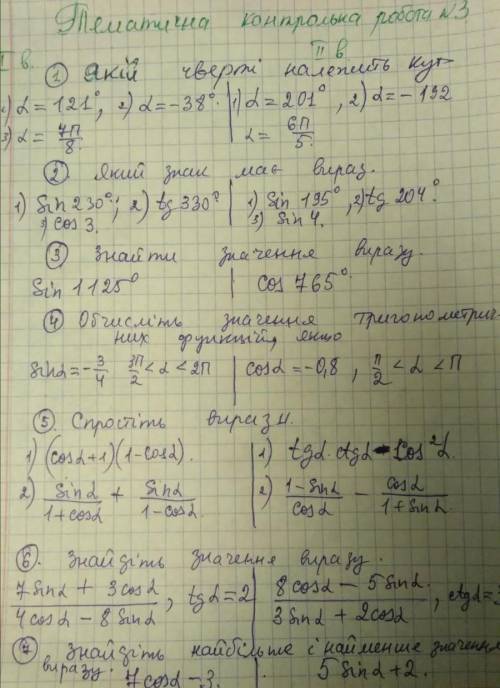 Тематична контрольна робота №3
I в. II в
① Якій чверті належить кут
1) α = 121°, 2) α = -38° | 1) α = 201°, 2) α = -192
3) α = 7π/8. | α = 6π/5.
② Який знак має вираз.
1) Sin 230°; 2) tg 330° | 1) Sin 195°, 2) tg 204°.
3) cos 3. | 3) Sin 4.
③ Знайти значення виразу.
Sin 1125° | cos 765°.
④ Обчисліть значення тригонометрич-
них функцій, якщо
sinα = -3/4 3π/2 < α < 2π | cosα = -0,8, π/2 < α < π
⑤. Спростіть вирази.
1) (cosα+1)(1-cosα). | 1) tgα·ctgα - cos²α.
2) sinα/(1+cosα) + sinα/(1-cosα) | 2) (1-sinα)/cosα - cosα/(1+sinα)
⑥. Знайдіть значення виразу.
(7sinα + 3cosα)/(4cosα - 8sinα), tgα=2 | (8cosα - 5sinα)/(3sinα + 2cosα), ctgα=
⑦ Знайдіть найбільше і найменше значення
виразу. 7cosα - 3. 5sinα + 2.